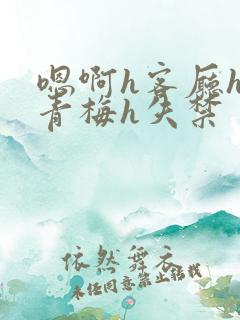 嗯啊h客厅h
青梅h失禁
依然舞衣
未经同意禁止转载